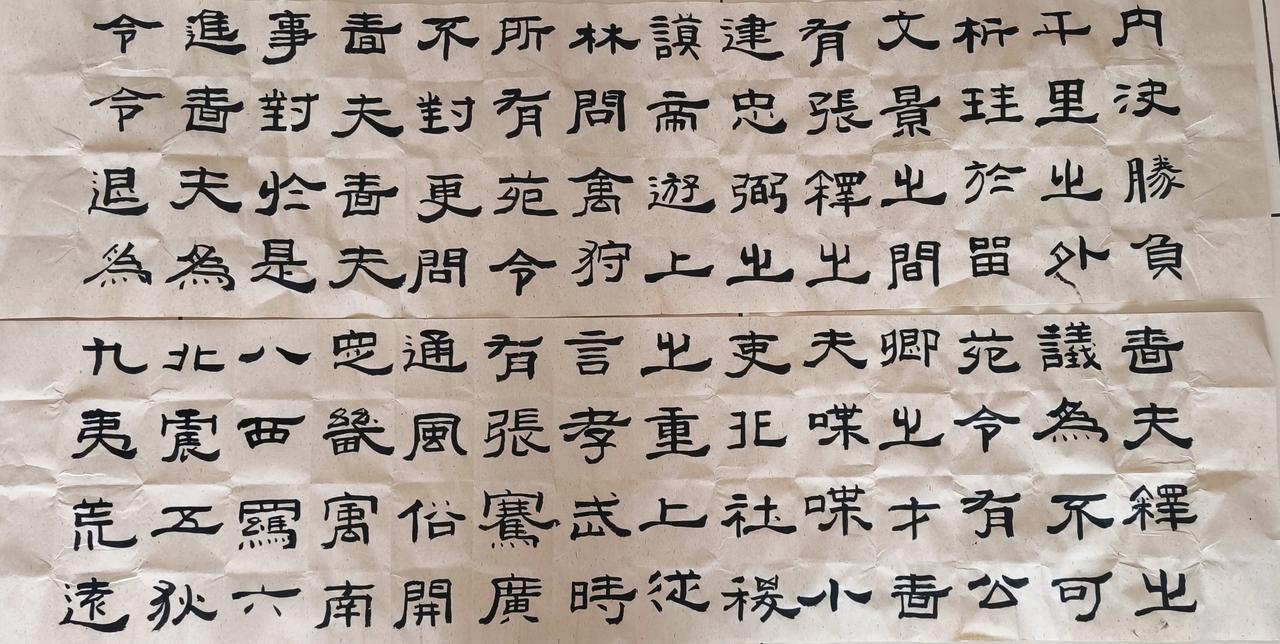 内決勝負
千里之外
析珪於留
文景之間
有張釋之
建忠弼之
謨帝遊上
林問禽狩
所有苑令
不對更問
嗇夫嗇夫
事對於是
進嗇夫為
令令退為
嗇夫釋之
議為不可
苑令有公
卿之才嗇
夫喋喋小
吏非社稷
之重上從
言孝武時
有張騫廣
通風俗開
定畿寓南
八西羈六
北震五狄
九夷荒遠